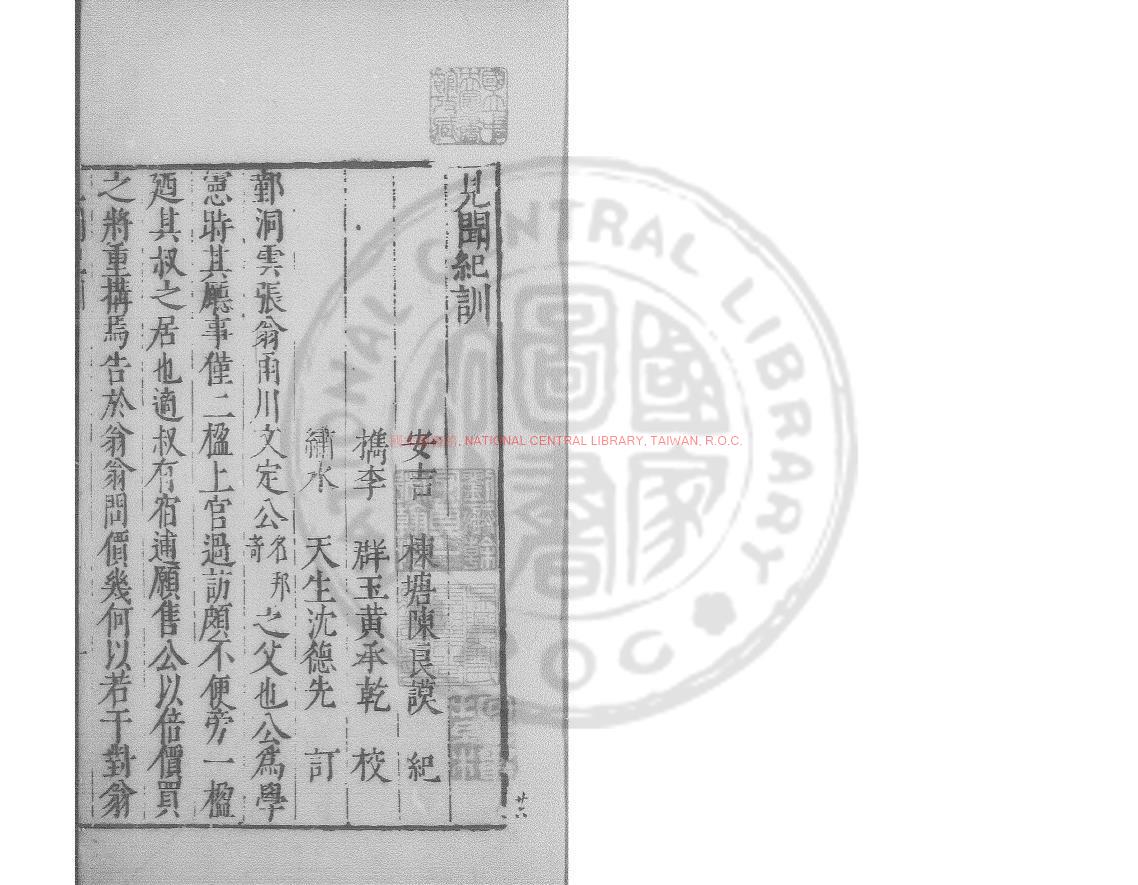 見聞紀訓
安吉 棟塘陳良謨 紀
檇李 群玉黃承乾 校
繡水 天生沈德先 訂
鄞洞雲張翁甬川文定公名邦奇之父也公為學
憲時其廳事僅二楹上官過訪頗不便旁一楹
廼其叔之居也適叔有宿逋願售公以倍價買
之將重搆焉告於翁翁問價幾何以若干對翁
廿六
NATIONAL CENTRAL LIBRARY, TAIWAN, R.O.C.
NATIONAL CENTRAL LIBRARY
ROC
國家圖書